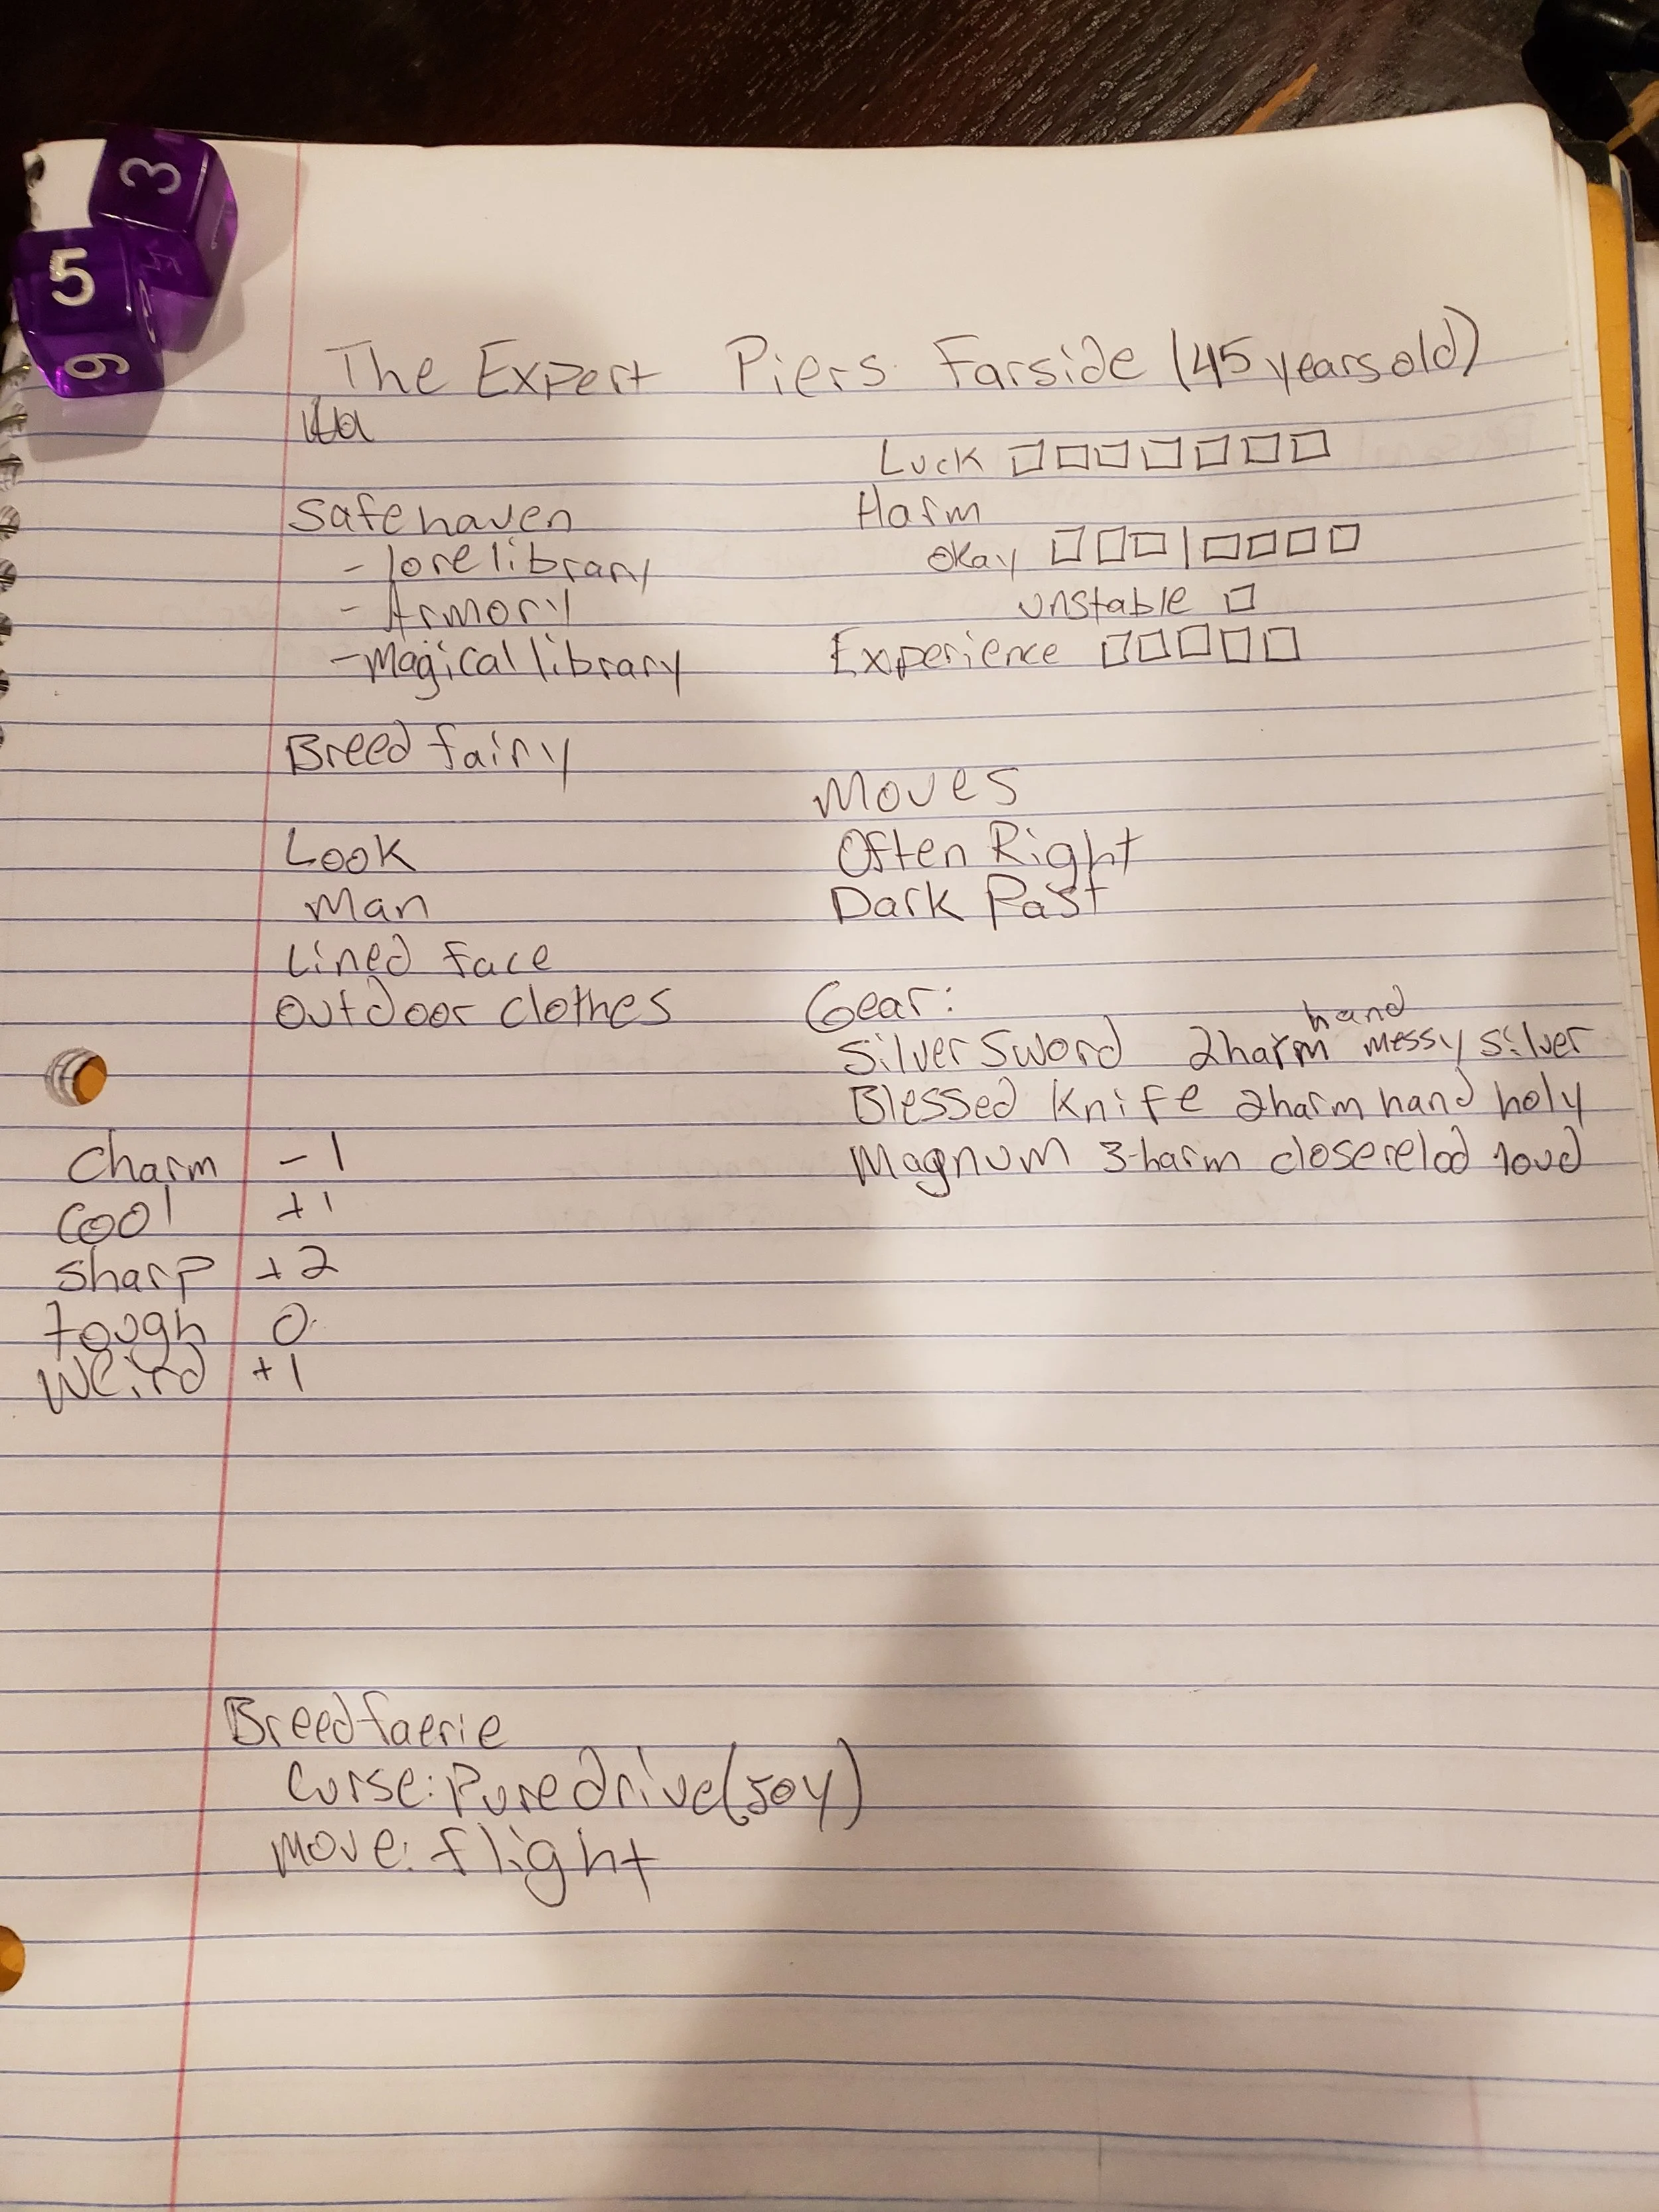 3
5
6
The Expert Piers Farside (45 years old)
Luck
Safehaven
- lore library
- Armory
- Magical library
Harm
okay
unstable
Experience
Breed fairy
Look
Man
Lined face
Outdoor clothes
Moves
Often Right
Dark Past
Gear:
Silver Sword 2harm hand messy silver
Blessed Knife 2harm hand holy
Magnum 3-harm close relod loud
Charm -1
Cool +1
Sharp +2
Tough 0
Weird +1
Breed faerie
Curse: Pure drive (Joy)
Move: flight